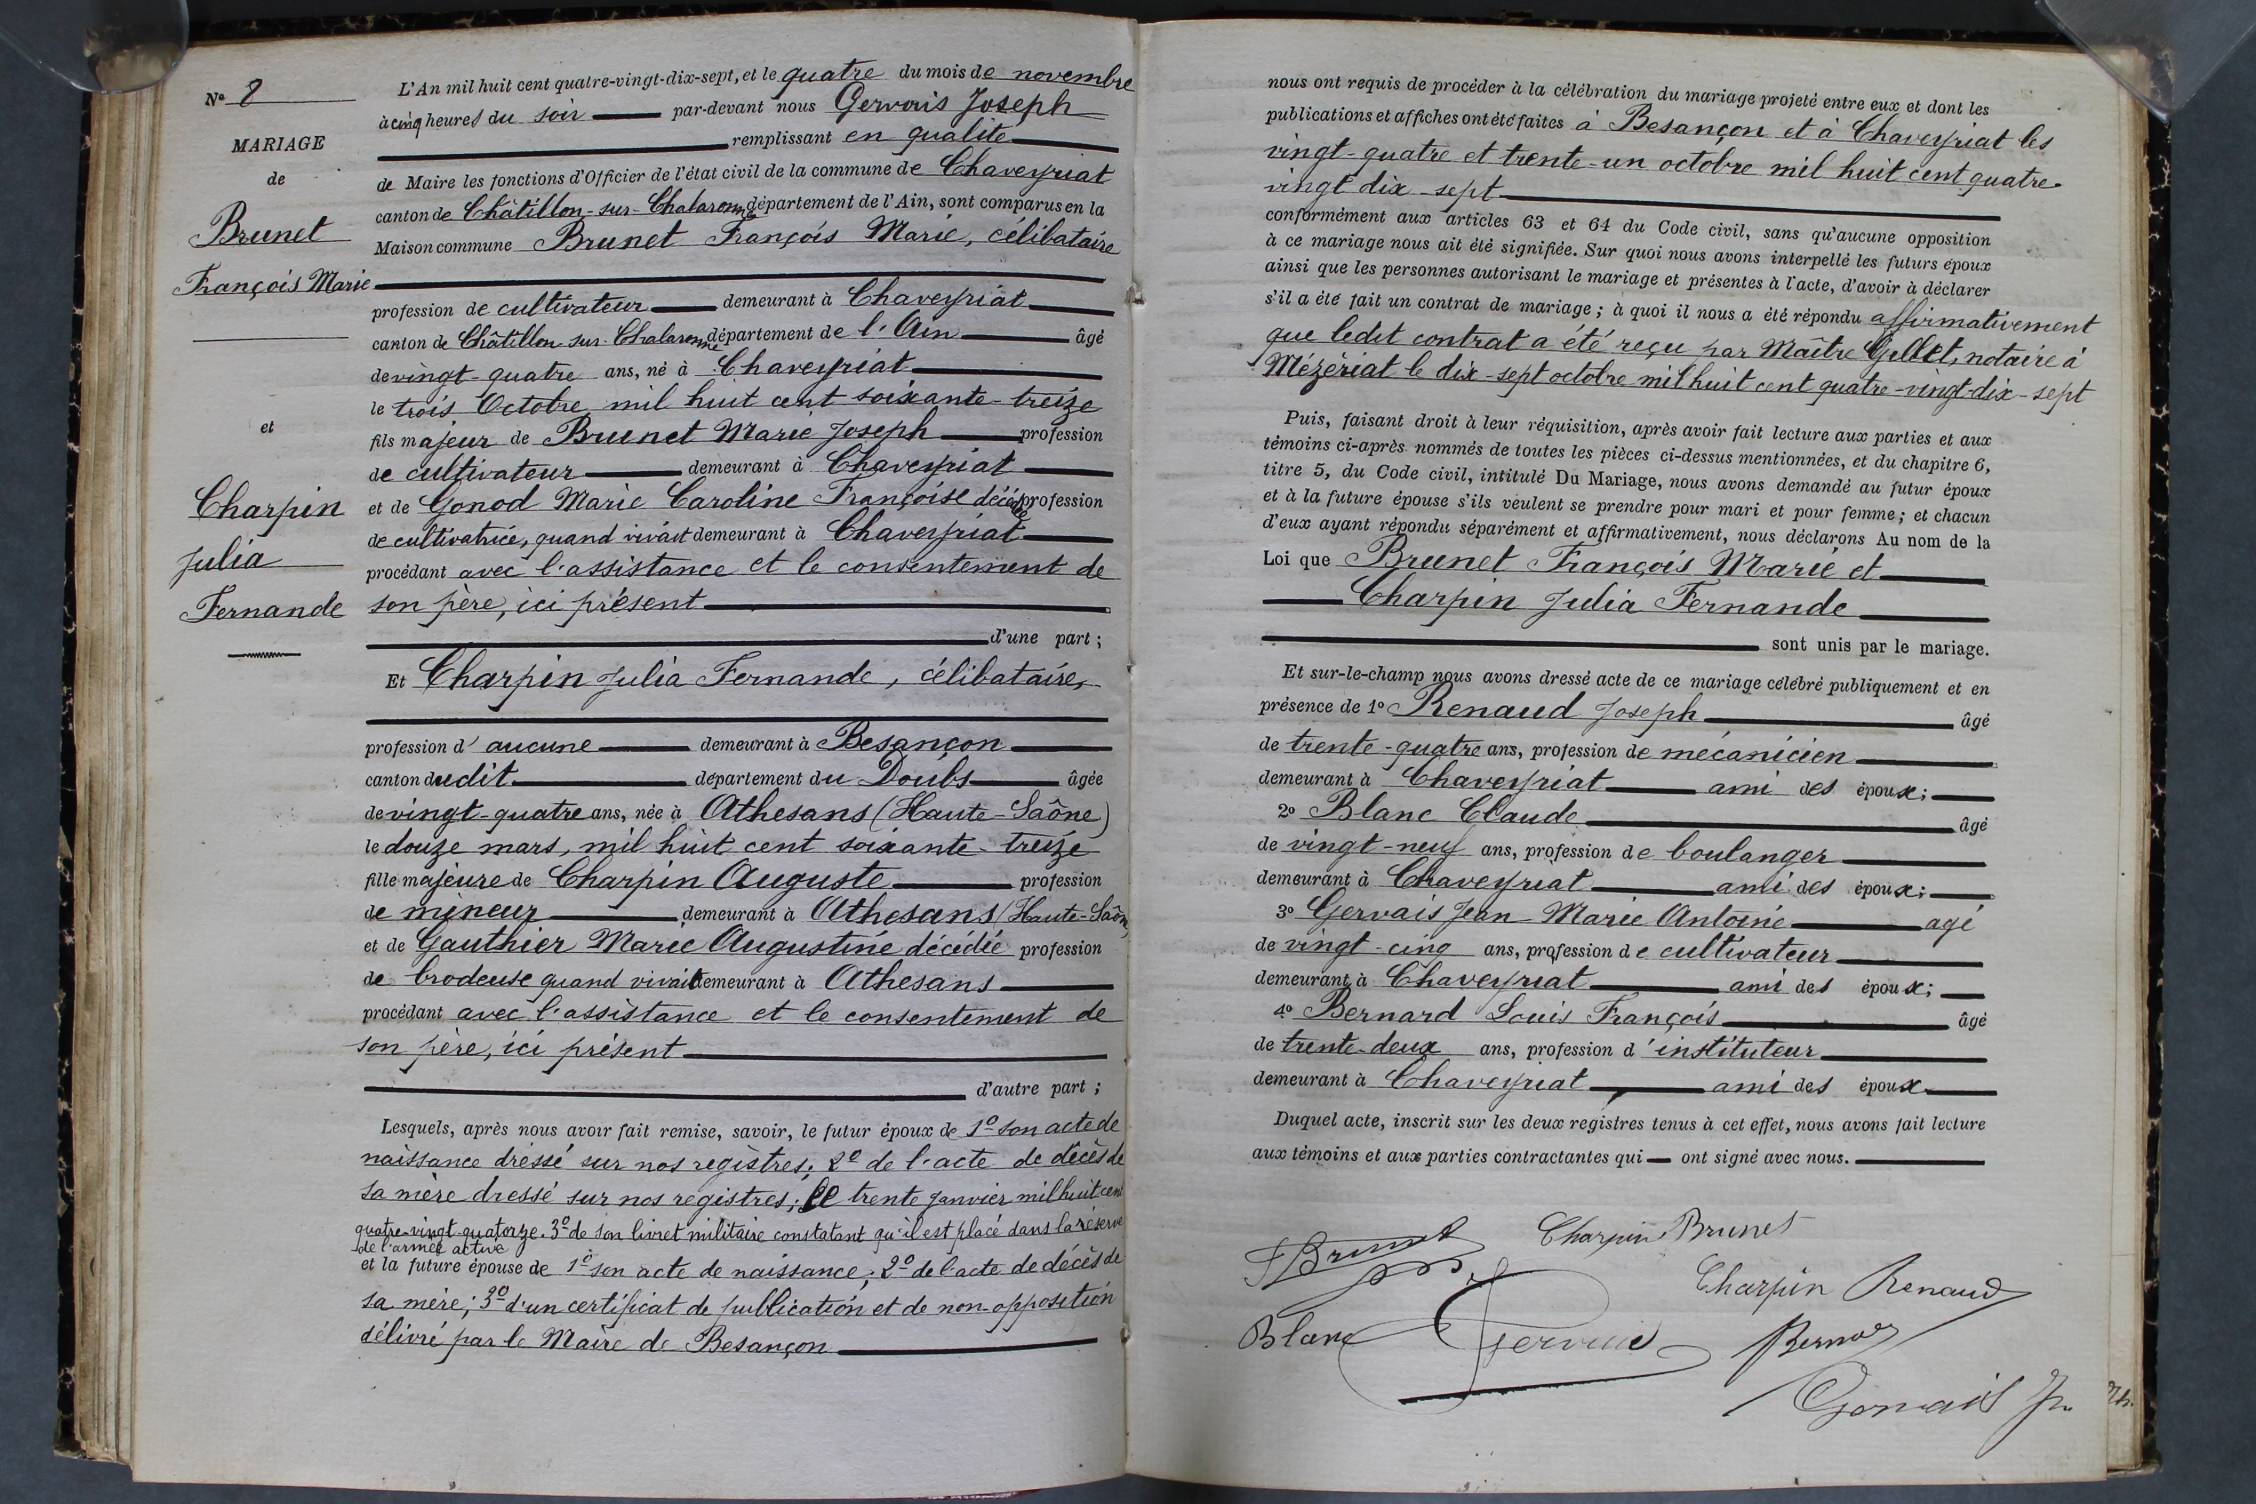 Nº 8
MARIAGE
de
Brunet
François Marie
et
Charpin
Julia
Fernande
L'An mil huit cent quatre-vingt-dix-sept, et le quatre du mois de novembre
à cinq heures du soir par-devant nous Gervais Joseph
remplissant en qualité
de Maire les fonctions d'Officier de l'état civil de la commune de Chaveyriat
canton de Châtillon-sur-Chalaronne département de l'Ain, sont comparus en la
Maison commune Brunet François Marie, célibataire
profession de cultivateur demeurant à Chaveyriat
canton de Châtillon-sur-Chalaronne département de l'Ain âgé
de vingt-quatre ans, né à Chaveyriat
le trois Octobre mil huit cent soixante-treize
fils majeur de Brunet Marie Joseph profession
de cultivateur demeurant à Chaveyriat
et de Gonod Marie Caroline Françoise décédée profession
de cultivatrice, quand vivait demeurant à Chaveyriat
procédant avec l'assistance et le consentement de
son père, ici présent
d'une part ;
Et Charpin Julia Fernande, célibataire,
profession d'aucune demeurant à Besançon
canton dudit département du Doubs âgée
de vingt-quatre ans, née à Athesans (Haute-Saône)
le douze mars, mil huit cent soixante-treize
fille majeure de Charpin Auguste profession
de mineur demeurant à Athesans (Haute-Saône)
et de Gauthier Marie Augustine décédée profession
de brodeuse quand vivait demeurant à Athesans
procédant avec l'assistance et le consentement de
son père, ici présent
d'autre part ;
Lesquels, après nous avoir fait remise, savoir, le futur époux de 1º son acte de
naissance dressé sur nos registres; 2º de l'acte de décès de
sa mère dressé sur nos registres; le trente janvier mil huit cent
quatre-vingt-quatorze. 3º de son livret militaire constatant qu'il est placé dans la réserve
de l'armée active
et la future épouse de 1º son acte de naissance; 2º de l'acte de décès de
sa mère; 3º d'un certificat de publication et de non-opposition
délivré par le Maire de Besançon
nous ont requis de procéder à la célébration du mariage projeté entre eux et dont les
publications et affiches ont été faites à Besançon et à Chaveyriat les
vingt-quatre et trente-un octobre mil huit cent quatre-
vingt dix-sept
conformément aux articles 63 et 64 du Code civil, sans qu'aucune opposition
à ce mariage nous ait été signifiée. Sur quoi nous avons interpellé les futurs époux
ainsi que les personnes autorisant le mariage et présentes à l'acte, d'avoir à déclarer
s'il a été fait un contrat de mariage ; à quoi il nous a été répondu affirmativement
que ledit contrat a été reçu par Maître Gellet, notaire à
Mézériat le dix-sept octobre mil huit cent quatre-vingt-dix-sept
Puis, faisant droit à leur réquisition, après avoir fait lecture aux parties et aux
témoins ci-après nommés de toutes les pièces ci-dessus mentionnées, et du chapitre 6,
titre 5, du Code civil, intitulé Du Mariage, nous avons demandé au futur époux
et à la future épouse s'ils veulent se prendre pour mari et pour femme ; et chacun
d'eux ayant répondu séparément et affirmativement, nous déclarons Au nom de la
Loi que Brunet François Marie et
Charpin Julia Fernande
sont unis par le mariage.
Et sur-le-champ nous avons dressé acte de ce mariage célébré publiquement et en
présence de 1º Renaud Joseph âgé
de trente-quatre ans, profession de mécanicien
demeurant à Chaveyriat ami des époux;
2º Blanc Claude âgé
de vingt-neuf ans, profession de boulanger
demeurant à Chaveyriat ami des époux;
3º Gervais Jean Marie Antoine agé
de vingt-cinq ans, profession de cultivateur
demeurant à Chaveyriat ami des époux;
4º Bernard Louis François âgé
de trente-deux ans, profession d'instituteur
demeurant à Chaveyriat ami des époux
Duquel acte, inscrit sur les deux registres tenus à cet effet, nous avons fait lecture
aux témoins et aux parties contractantes qui ont signé avec nous.
F Brunet Charpin Brunet
Charpin Renaud
Blanc Gervais Bernard
Gervais